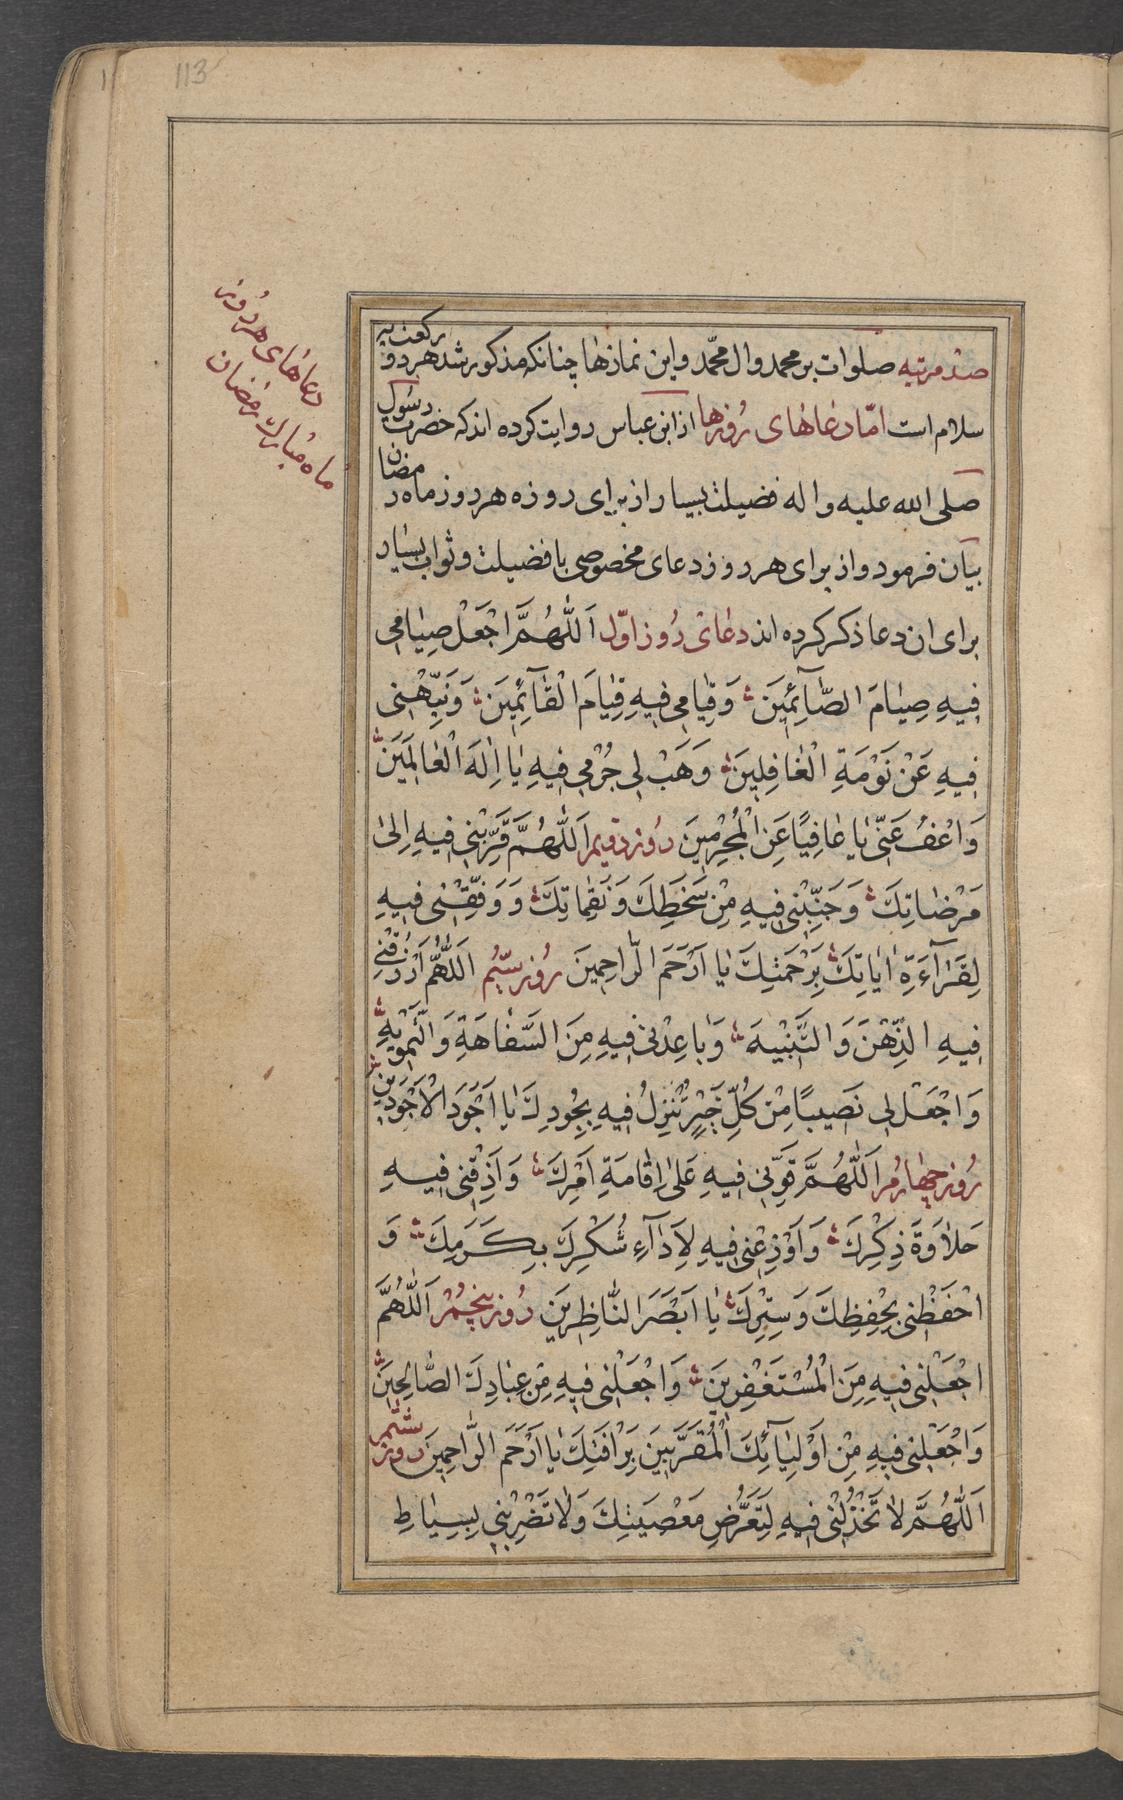 113
دعاهای هر روز
ماه مبارک رمضان
صد مرتبه صلوات بر محمد وال محمّد واین نمازها چنانکه مذکور شد هر دو رکعت بیه
سلام است امّا دعاهای روزها از ابن عباس روایت کرده اند که حضرت رسول
صلی الله علیه واله فضیلت بسیار از برای روزه هر روز ماه رمضان
بیان فرمود و از برای هر روز دعای مخصوصی با فضیلت و ثواب بسیار
برای ان دعا ذکر کرده اند دعای روز اوّل اَللّٰهُمَّ اجْعَلْ صِیٰامی
فیهِ صِیٰامَ الصّٰآئِمینَ وَقِیٰامی فیهِ قِیٰامَ الْقٰآئِمینَ وَنَبِّهْنی
فیهِ عَنْ نَوْمَةِ الْغٰافِلینَ وَهَبْ لی جُرْمی فیهِ یٰا اِلٰهَ الْعٰالَمینَ
وَاعْفُ عَنّی یٰا عٰافِیًا عَنِ الْمُجْرِمینَ روز دویم اَللّٰهُمَّ قَرِّبْنی فیهِ اِلیٰ
مَرْضٰاتِكَ وَجَنِّبْنی فیهِ مِنْ سَخَطِكَ وَنَقِمٰاتِكَ وَوَفِّقْنی فیهِ
لِقَرٰآءَةِ اٰیٰاتِكَ بِرَحْمَتِكَ یٰا اَرْحَمَ الرّٰاحِمینَ روز سیّم اَللّٰهُمَّ ارْزُقْنی
فیهِ الذِّهْنَ وَالتَّنْبیهَ وَبٰاعِدْنی فیهِ مِنَ السَّفٰاهَةِ وَالتَّمْویهِ
وَاجْعَلْ لی نَصیبًا مِنْ کُلِّ خَیْرٍ تُنْزِلُ فیهِ بِجُودِكَ یٰا اَجْوَدَ الْاَجْوَدینَ
روز چهارم اَللّٰهُمَّ قَوِّنی فیهِ عَلیٰ اِقٰامَةِ اَمْرِكَ وَاَذِقْنی فیهِ
حَلٰاوَةَ ذِکْرِكَ وَاَوْزِعْنی فیهِ لِاَدٰآءِ شُکْرِكَ بِکَرَمِكَ وَ
احْفَظْنی بِحِفْظِكَ وَسِتْرِكَ یٰا اَبْصَرَ النّٰاظِرینَ روز پنجم اَللّٰهُمَّ
اجْعَلْنی فیهِ مِنَ الْمُسْتَغْفِرینَ وَاجْعَلْنی فیهِ مِنْ عِبٰادِكَ الصّٰالِحینَ
وَاجْعَلْنی فیهِ مِنْ اَوْلِیٰآئِكَ الْمُقَرَّبینَ بِرَافَتِكَ یٰا اَرْحَمَ الرّٰاحِمینَ روز ششم
اَللّٰهُمَّ لاٰ تَخْذُلْنی فیهِ لِتَعَرُّضِ مَعْصِیَتِكَ وَلاٰ تَضْرِبْنی بِسِیٰاطِ